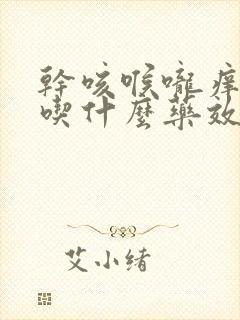 幹咳喉嚨痒
喫什麼藥效
艾小绪